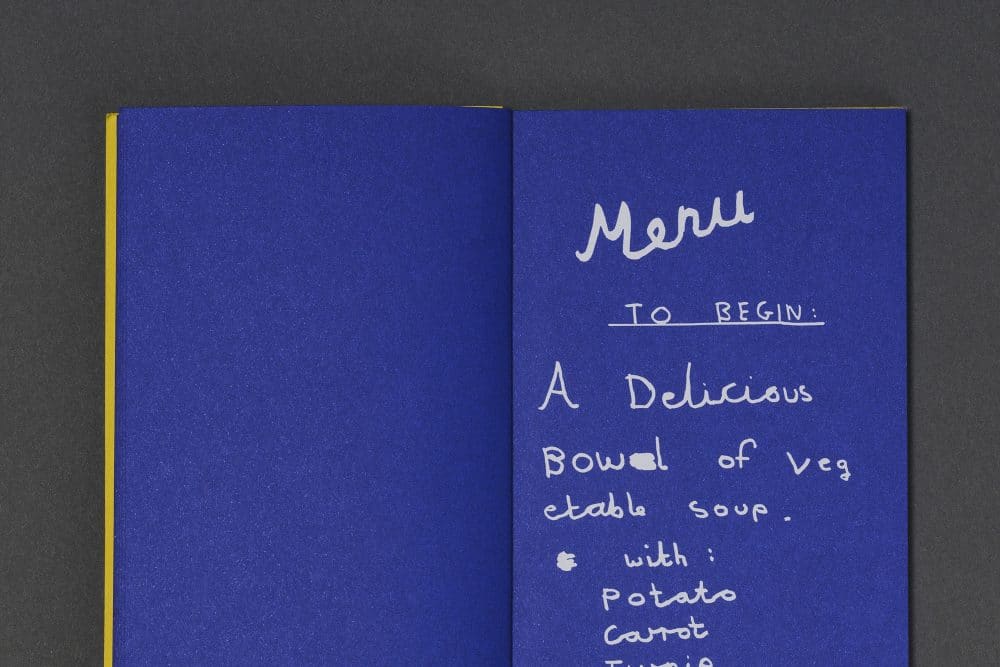 Menu
TO BEGIN:
A Delicious
Bowl of veg
etable soup.
with:
Potato
Carrot
Turnip